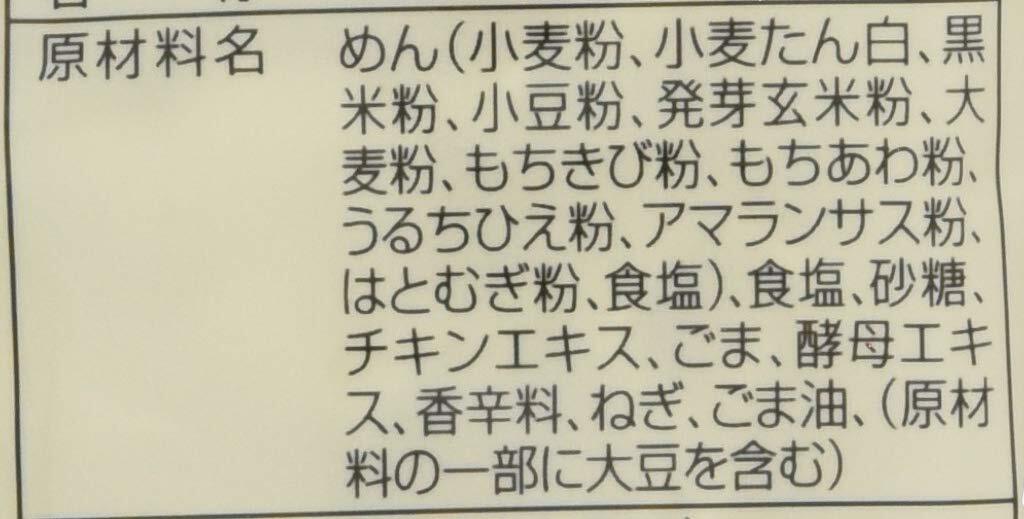 原材料名 めん(小麦粉、小麦たん白、黒
米粉、小豆粉、発芽玄米粉、大
麦粉、もちきび粉、もちあわ粉、
うるちひえ粉、アマランサス粉、
はとむぎ粉、食塩)、食塩、砂糖、
チキンエキス、ごま、酵母エキ
ス、香辛料、ねぎ、ごま油、(原材
料の一部に大豆を含む)